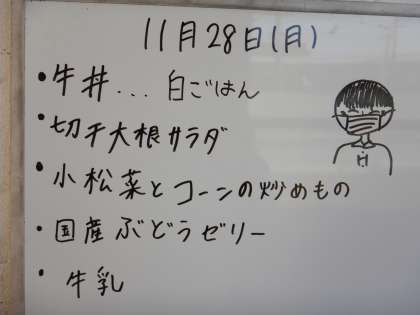 11月28日(月)
・牛丼...白ごはん
・切干大根サラダ
・小松菜とコーンの炒めもの
・国産ぶどうゼリー
・牛乳